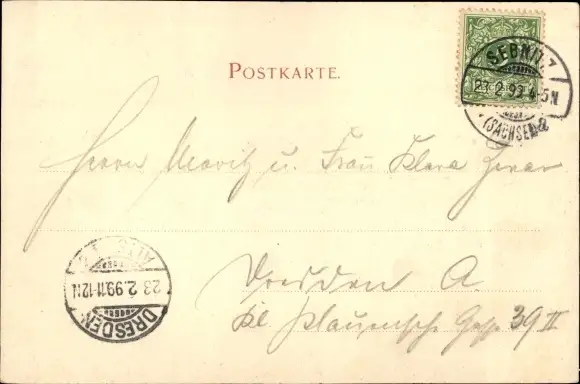 POSTKARTE.
SEBNITZ
23 2 99 4-5N
(SACHSEN) a
Herrn Moritz u. Frau Klara
Dresden A.
Kl. Plauensche Gasse 39 II
ALTST.
23 2. 99. 11-12N
DRESDEN